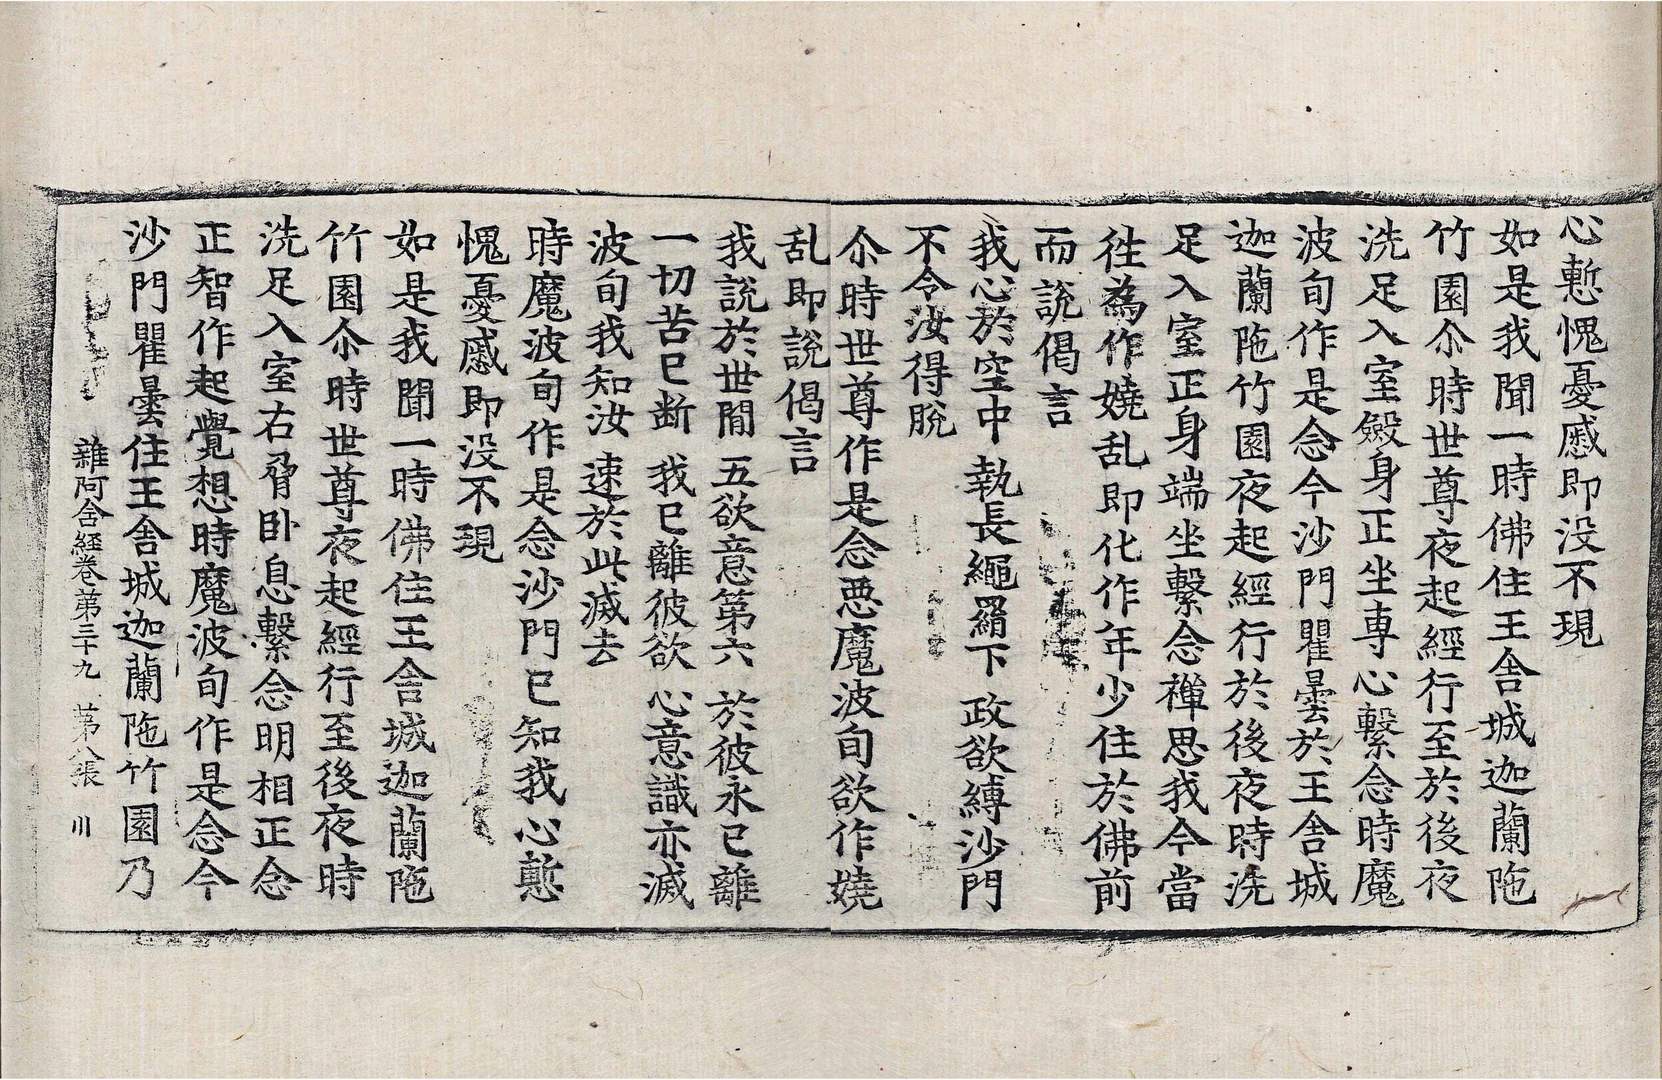 心慙愧憂慼即没不現
如是我聞一時佛住王舍城迦蘭陁
竹園尒時世尊夜起經行至於後夜
洗足入室斂身正坐專心繫念時魔
波旬作是念今沙門瞿曇於王舍城
迦蘭陁竹園夜起經行於後夜時洗
足入室正身端坐繫念禪思我今當
徃為作嬈乱即化作年少住於佛前
而說偈言
我心於空中 執長繩羂下 政欲縛沙門
不令汝得脫
尒時世尊作是念惡魔波旬欲作嬈
乱即說偈言
我說於世間 五欲意第六 於彼永已離
一切苦已断 我已離彼欲 心意識亦滅
波旬我知汝 速於此滅去
時魔波旬作是念沙門已知我心慙
愧憂慼即没不現
如是我聞一時佛住王舍城迦蘭陁
竹園尒時世尊夜起經行至後夜時
洗足入室右脅卧息繫念明相正念
正智作起覺想時魔波旬作是念今
沙門瞿曇住王舍城迦蘭陁竹園乃
雜阿含経卷第三十九 苐八張 川